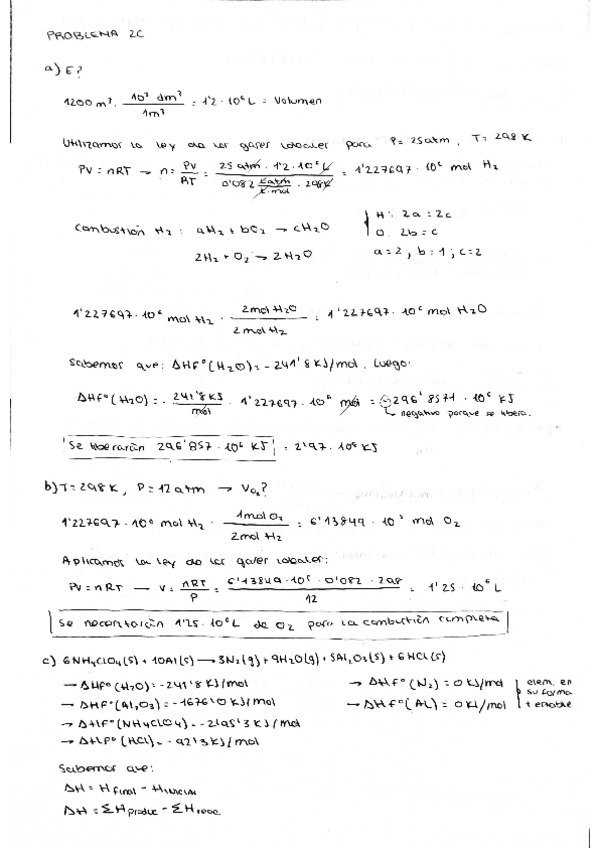 PROBLEMA 2C
a) E?
1200 m³ · 10³ dm³ / 1m³ = 1'2 · 10⁶ L = Volumen
Utilizamos la ley de los gases ideales para P = 25 atm, T = 298 K
PV = nRT → n = PV/RT = 25 atm · 1'2 · 10⁶ L / 0'082 L atm/K·mol · 298K = 1'227697 · 10⁶ mol H₂
Combustión H₂ : aH₂ + bO₂ → cH₂O
H: 2a = 2c
O: 2b = c
2H₂ + O₂ → 2H₂O
a = 2 ; b = 1 ; c = 2
1'227697 · 10⁶ mol H₂ · 2mol H₂O / 2 mol H₂ = 1'227697 · 10⁶ mol H₂O
Sabemos que: ΔHf°(H₂O) = -241'8 KJ/mol, luego:
ΔHf°(H₂O) = - 241'8 KJ / mol · 1'227697 · 10⁶ mol = -296'8571 · 10⁶ KJ
negativo porque se libera.
Se liberarán 296'857 · 10⁶ KJ = 2'97 · 10⁸ KJ
b) T = 298 K, P = 12 atm → V O₂?
1'227697 · 10⁶ mol H₂ · 1mol O₂ / 2mol H₂ = 6'13849 · 10⁵ mol O₂
Aplicamos la ley de los gases ideales:
PV = nRT → V = nRT/P = 6'13849 · 10⁵ · 0'082 · 298 / 12 = 1'25 · 10⁶ L
Se necesitarán 1'25 · 10⁶ L de O₂ para la combustión completa
c) 6NH₄ClO₄(s) + 10Al(s) → 3N₂(g) + 9H₂O(g) + 5Al₂O₃(s) + 6HCl(s)
→ ΔHf°(H₂O) = -241'8 KJ/mol
→ ΔHf°(N₂) = 0 KJ/mol
elem. en su forma + estable
→ ΔHf°(Al₂O₃) = -1676'0 KJ/mol
→ ΔHf°(Al) = 0 KJ/mol
→ ΔHf°(NH₄ClO₄) = -295'3 KJ/mol
→ ΔHf°(HCl) = -92'3 KJ/mol
Sabemos que:
ΔH = H final - H inicial
ΔH = ΣH produc - ΣH reac.